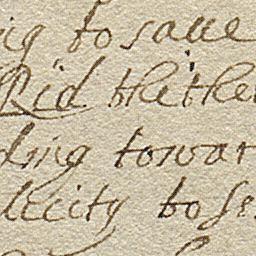 ig to saue
Rid thithe
ding towar
licity to se